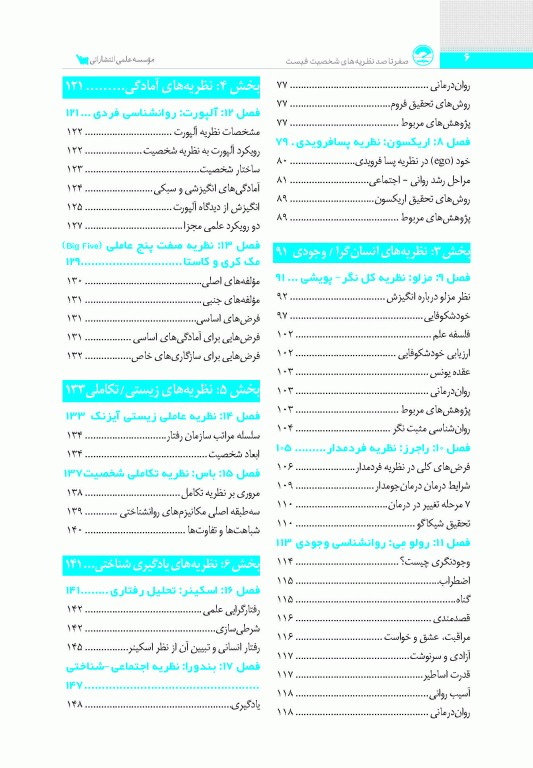 ۶
صفر تا صد نظریه‌های شخصیت فیست
مؤسسه علمی انتشاراتی
روان‌درمانی ................ ۷۷
روش‌های تحقیق فروم ................ ۷۷
پژوهش‌های مربوط ................ ۷۷
فصل ۸: اریکسون: نظریه پسافرویدی . ۷۹
خود (ego) در نظریه پسا فرویدی ................ ۸۰
مراحل رشد روانی - اجتماعی ................ ۸۱
روش‌های تحقیق اریکسون ................ ۸۹
پژوهش‌های مربوط ................ ۸۹
بخش ۳: نظریه‌های انسان‌گرا / وجودی ۹۱
فصل ۹: مزلو: نظریه کل نگر - پویشی ... ۹۱
نظر مزلو درباره انگیزش ................ ۹۲
خودشکوفایی ................ ۹۷
فلسفه علم ................ ۱۰۲
ارزیابی خودشکوفایی ................ ۱۰۲
عقده یونس ................ ۱۰۳
روان‌درمانی ................ ۱۰۳
پژوهش‌های مربوط ................ ۱۰۳
روان‌شناسی مثبت نگر ................ ۱۰۴
فصل ۱۰: راجرز: نظریه فردمدار ......... ۱۰۵
فرض‌های کلی در نظریه فردمدار ................ ۱۰۶
شرایط درمان درمان‌جومدار ................ ۱۰۹
۷ مرحله تغییر در درمان ................ ۱۱۰
تحقیق شیکاگو ................ ۱۱۰
فصل ۱۱: رولو می: روانشناسی وجودی ۱۱۳
وجودنگری چیست؟ ................ ۱۱۴
اضطراب ................ ۱۱۵
گناه ................ ۱۱۵
قصدمندی ................ ۱۱۶
مراقبت، عشق و خواست ................ ۱۱۶
آزادی و سرنوشت ................ ۱۱۷
قدرت اساطیر ................ ۱۱۷
آسیب روانی ................ ۱۱۸
روان‌درمانی ................ ۱۱۸
بخش ۴: نظریه‌های آمادگی ......... ۱۲۱
فصل ۱۲: آلپورت: روانشناسی فردی ... ۱۲۱
مشخصات نظریه آلپورت ................ ۱۲۲
رویکرد آلپورت به نظریه شخصیت ................ ۱۲۲
ساختار شخصیت ................ ۱۲۳
آمادگی‌های انگیزشی و سبکی ................ ۱۲۴
انگیزش از دیدگاه آلپورت ................ ۱۲۵
دو رویکرد علمی مجزا ................ ۱۲۷
فصل ۱۳: نظریه صفت پنج عاملی (Big Five)
مک کری و کاستا ................ ۱۲۹
مؤلفه‌های اصلی ................ ۱۳۰
مؤلفه‌های جنبی ................ ۱۳۱
فرض‌های اساسی ................ ۱۳۱
فرض‌هایی برای آمادگی‌های اساسی ................ ۱۳۱
فرض‌هایی برای سازگاری‌های خاص ................ ۱۳۲
بخش ۵: نظریه‌های زیستی/تکاملی ۱۳۳
فصل ۱۴: نظریه عاملی زیستی آیزنک ۱۳۳
سلسله مراتب سازمان رفتار ................ ۱۳۴
ابعاد شخصیت ................ ۱۳۴
فصل ۱۵: باس: نظریه تکاملی شخصیت ۱۳۷
مروری بر نظریه تکامل ................ ۱۳۸
سه‌طبقه اصلی مکانیزم‌های روانشناختی ............ ۱۳۹
شباهت‌ها و تفاوت‌ها ................ ۱۴۰
بخش ۶: نظریه‌های یادگیری شناختی ... ۱۴۱
فصل ۱۶: اسکینر: تحلیل رفتاری ........ ۱۴۱
رفتارگرایی علمی ................ ۱۴۲
شرطی‌سازی ................ ۱۴۲
رفتار انسانی و تبیین آن از نظر اسکینر ................ ۱۴۵
فصل ۱۷: بندورا: نظریه اجتماعی -شناختی
................ ۱۴۷
یادگیری ................ ۱۴۸